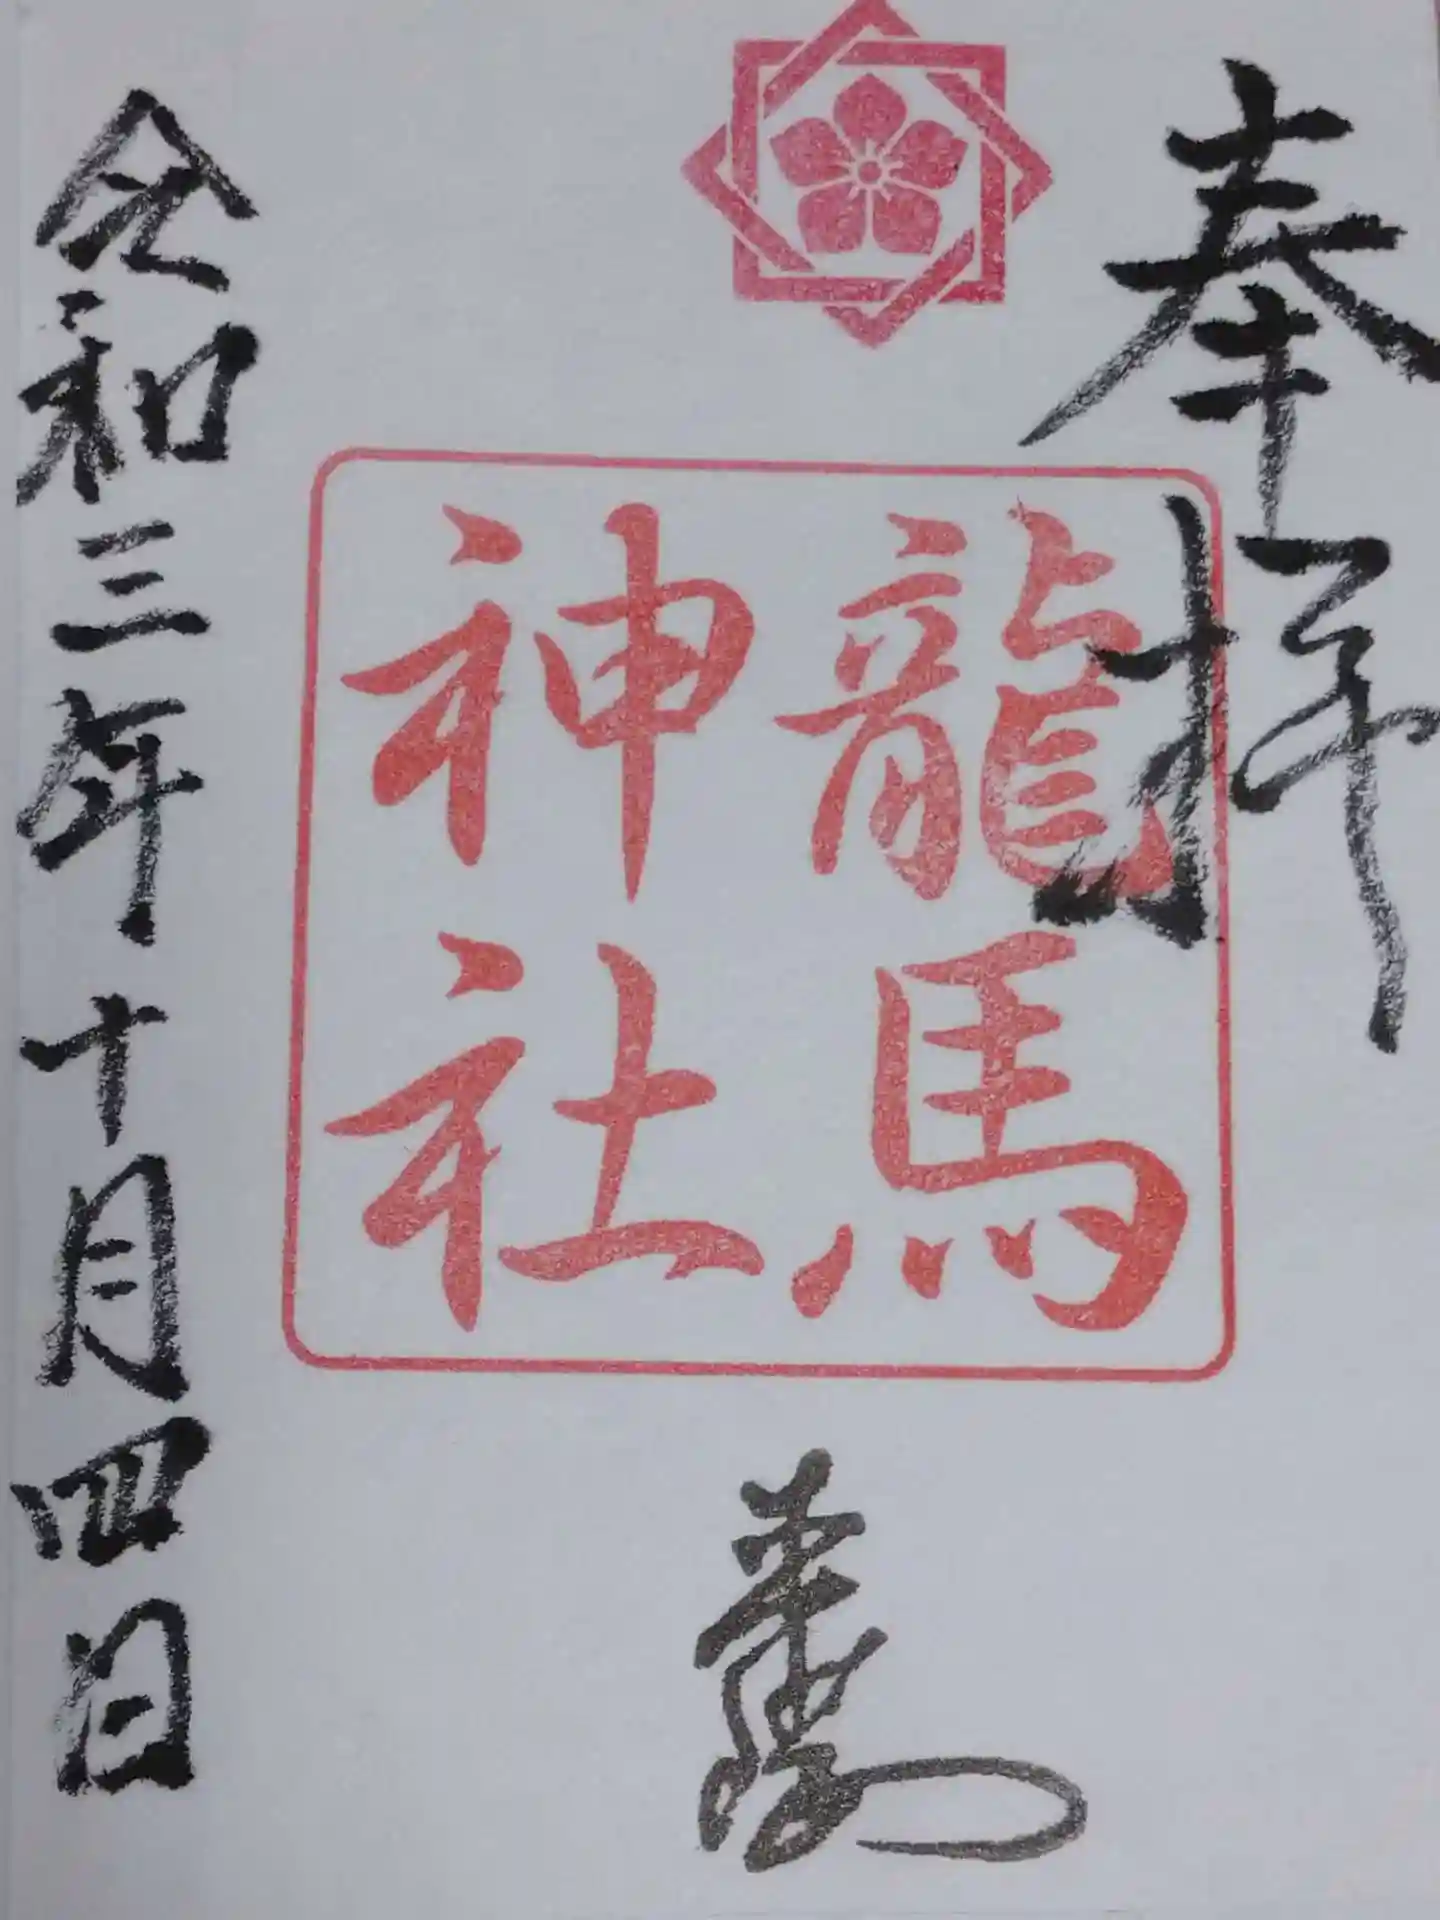 奉拝
龍馬
神社
令和三年十月四日